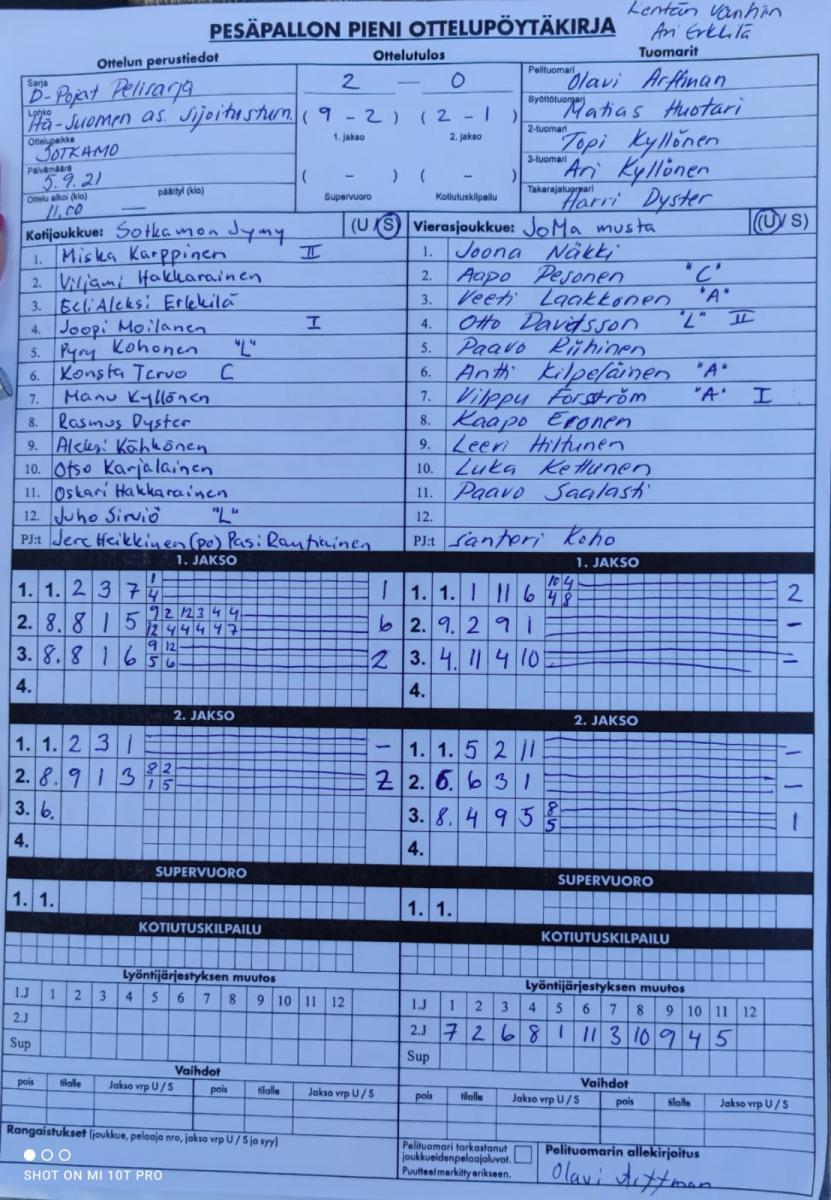 Kentän vanhin
Ari Erkkilä
PESÄPALLON PIENI OTTELUPÖYTÄKIRJA
Ottelun perustiedot
Sarja
D-Pojat Pelisarja
Lohko
Itä-Suomen as. sijoitusturn.
Ottelupaikka
SOTKAMO
Päivämäärä
5.9.21
Ottelu alkoi (klo) päättyi (klo)
11.00 —
Ottelutulos
2 — 0
( 9 - 2 ) ( 2 - 1 )
1. jakso 2. jakso
( - ) ( - )
Supervuoro Kotiutuskilpailu
Tuomarit
Pelituomari
Olavi Arffman
Syöttötuomari
Matias Huotari
2-tuomari
Topi Kyllönen
3-tuomari
Ari Kyllönen
Takarajatuomari
Harri Dyster
Kotijoukkue: Sotkamon Jymy (U / S)
1. Miska Karppinen II
2. Viljami Hakkarainen
3. Eeli Aleksi Erkkilä
4. Joopi Moilanen I
5. Pyry Kohonen "L"
6. Konsta Tervo C
7. Manu Kyllönen
8. Rasmus Dyster
9. Aleksi Kähkönen
10. Otso Karjalainen
11. Oskari Hakkarainen
12. Juho Sirviö "L"
PJ:t Jere Heikkinen (po) Pasi Rautiainen
Vierasjoukkue: JoMa musta (U / S)
1. Joona Näkki
2. Aapo Pesonen "C"
3. Veeti Laakkonen "A"
4. Otto Davidsson "L" II
5. Paavo Riihinen
6. Antti Kilpeläinen "A"
7. Vilppu Forström "A" I
8. Kaapo Eronen
9. Leevi Hiltunen
10. Luka Kettunen
11. Paavo Saalasti
12.
PJ:t Santeri Koho
1. JAKSO
1. 1. 2 3 7 1 1
4
2. 8. 8 1 5 9 2 12 3 4 4 6
12 4 4 4 4 7
3. 8. 8 1 6 9 12 2
5 6
4.
1. JAKSO
1. 1. 1 11 6 10 4 2
4 8
2. 9. 2 9 1 -
3. 4. 11 4 10 -
4.
2. JAKSO
1. 1. 2 3 1 -
2. 8. 9 1 3 8 2 2
1 5
3. 6.
4.
2. JAKSO
1. 1. 5 2 11 -
2. 6. 6 3 1 -
3. 8. 4 9 5 8 1
5
4.
SUPERVUORO
1. 1.
SUPERVUORO
1. 1.
KOTIUTUSKILPAILU
KOTIUTUSKILPAILU
Lyöntijärjestyksen muutos
1.J 1 2 3 4 5 6 7 8 9 10 11 12
2.J
Sup
Lyöntijärjestyksen muutos
1.J 1 2 3 4 5 6 7 8 9 10 11 12
2.J 7 2 6 8 1 11 3 10 9 4 5
Sup
Vaihdot
pois tilalle Jakso vrp U / S pois tilalle Jakso vrp U / S
Vaihdot
pois tilalle Jakso vrp U / S pois tilalle Jakso vrp U / S
Rangaistukset (joukkue, pelaaja nro, jakso vrp U / S ja syy)
Pelituomari tarkastanut
joukkueidenpelaajaluvat.
Puutteet merkitty erikseen.
Pelituomarin allekirjoitus
Olavi Arffman
SHOT ON MI 10T PRO